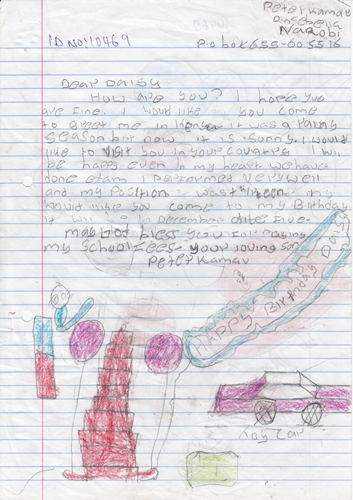 Peter Kamau
Nairobi
ID NO: 10469
P.o box 655-60
Dear Daisy
How are you? I hope you
are Fine. I would like you come
to greet me in Kenya it was a rainy
Season but now it is sunny. I would
like to visit you in your country I will
be happy even in my heart we have
done exam I Performed very well
and my Position was thirteen my
would like you come to my Birthday
it will in December date Five.
may God bless you For Paying
my School Fees. your loving son
Peter Kamau
HAPPY Birthday Daisy
toy car